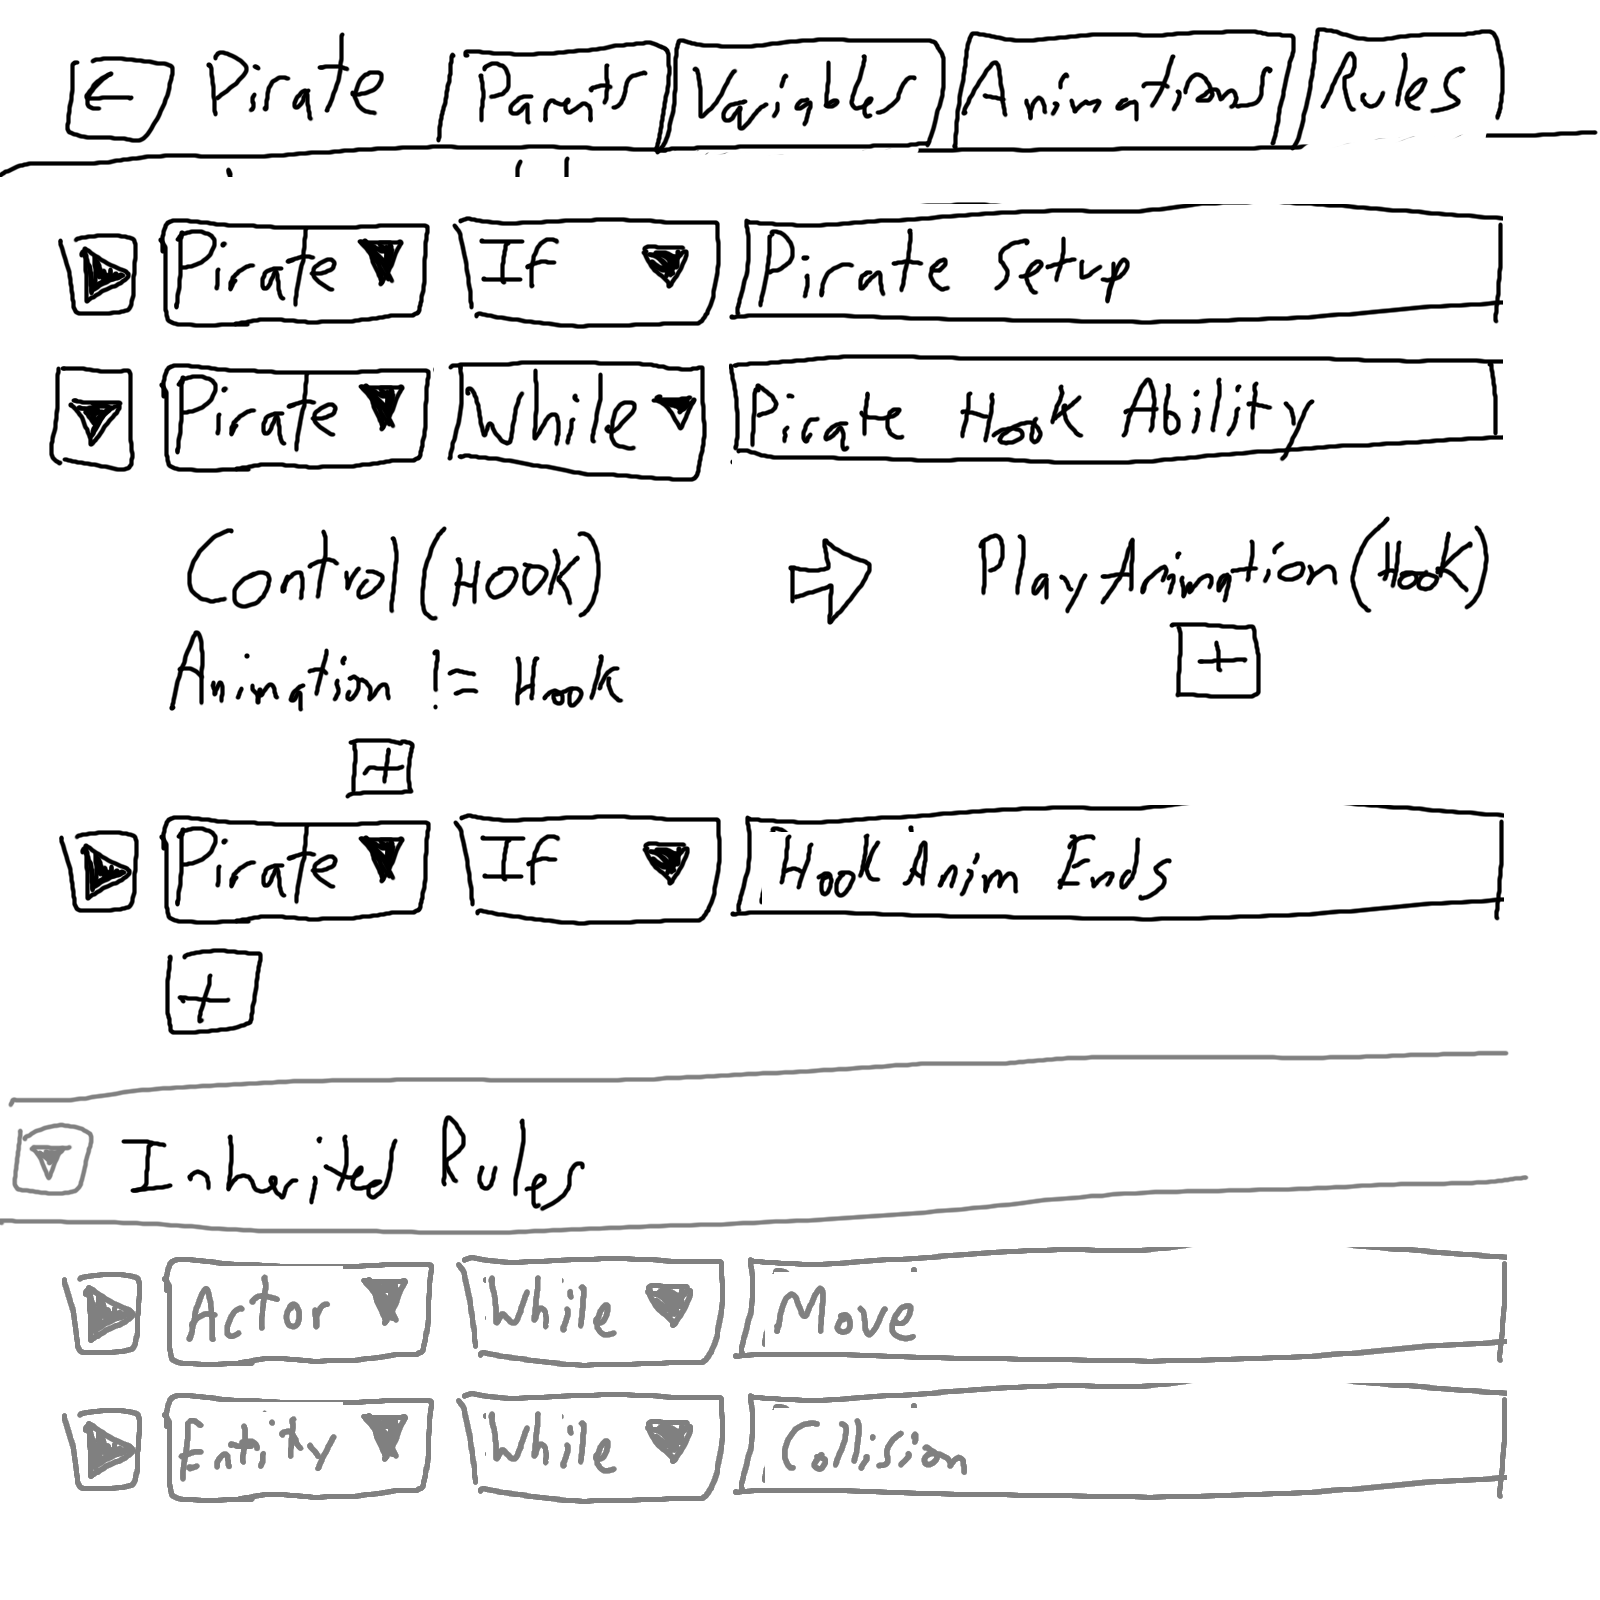 ← Pirate Parents Variables Animations Rules
Pirate If Pirate Setup
Pirate While Pirate Hook Ability
Control (HOOK) Play Animation (Hook)
Animation != Hook
+
+
Pirate If Hook Anim Ends
+
Inherited Rules
Actor While Move
Entity While Collision